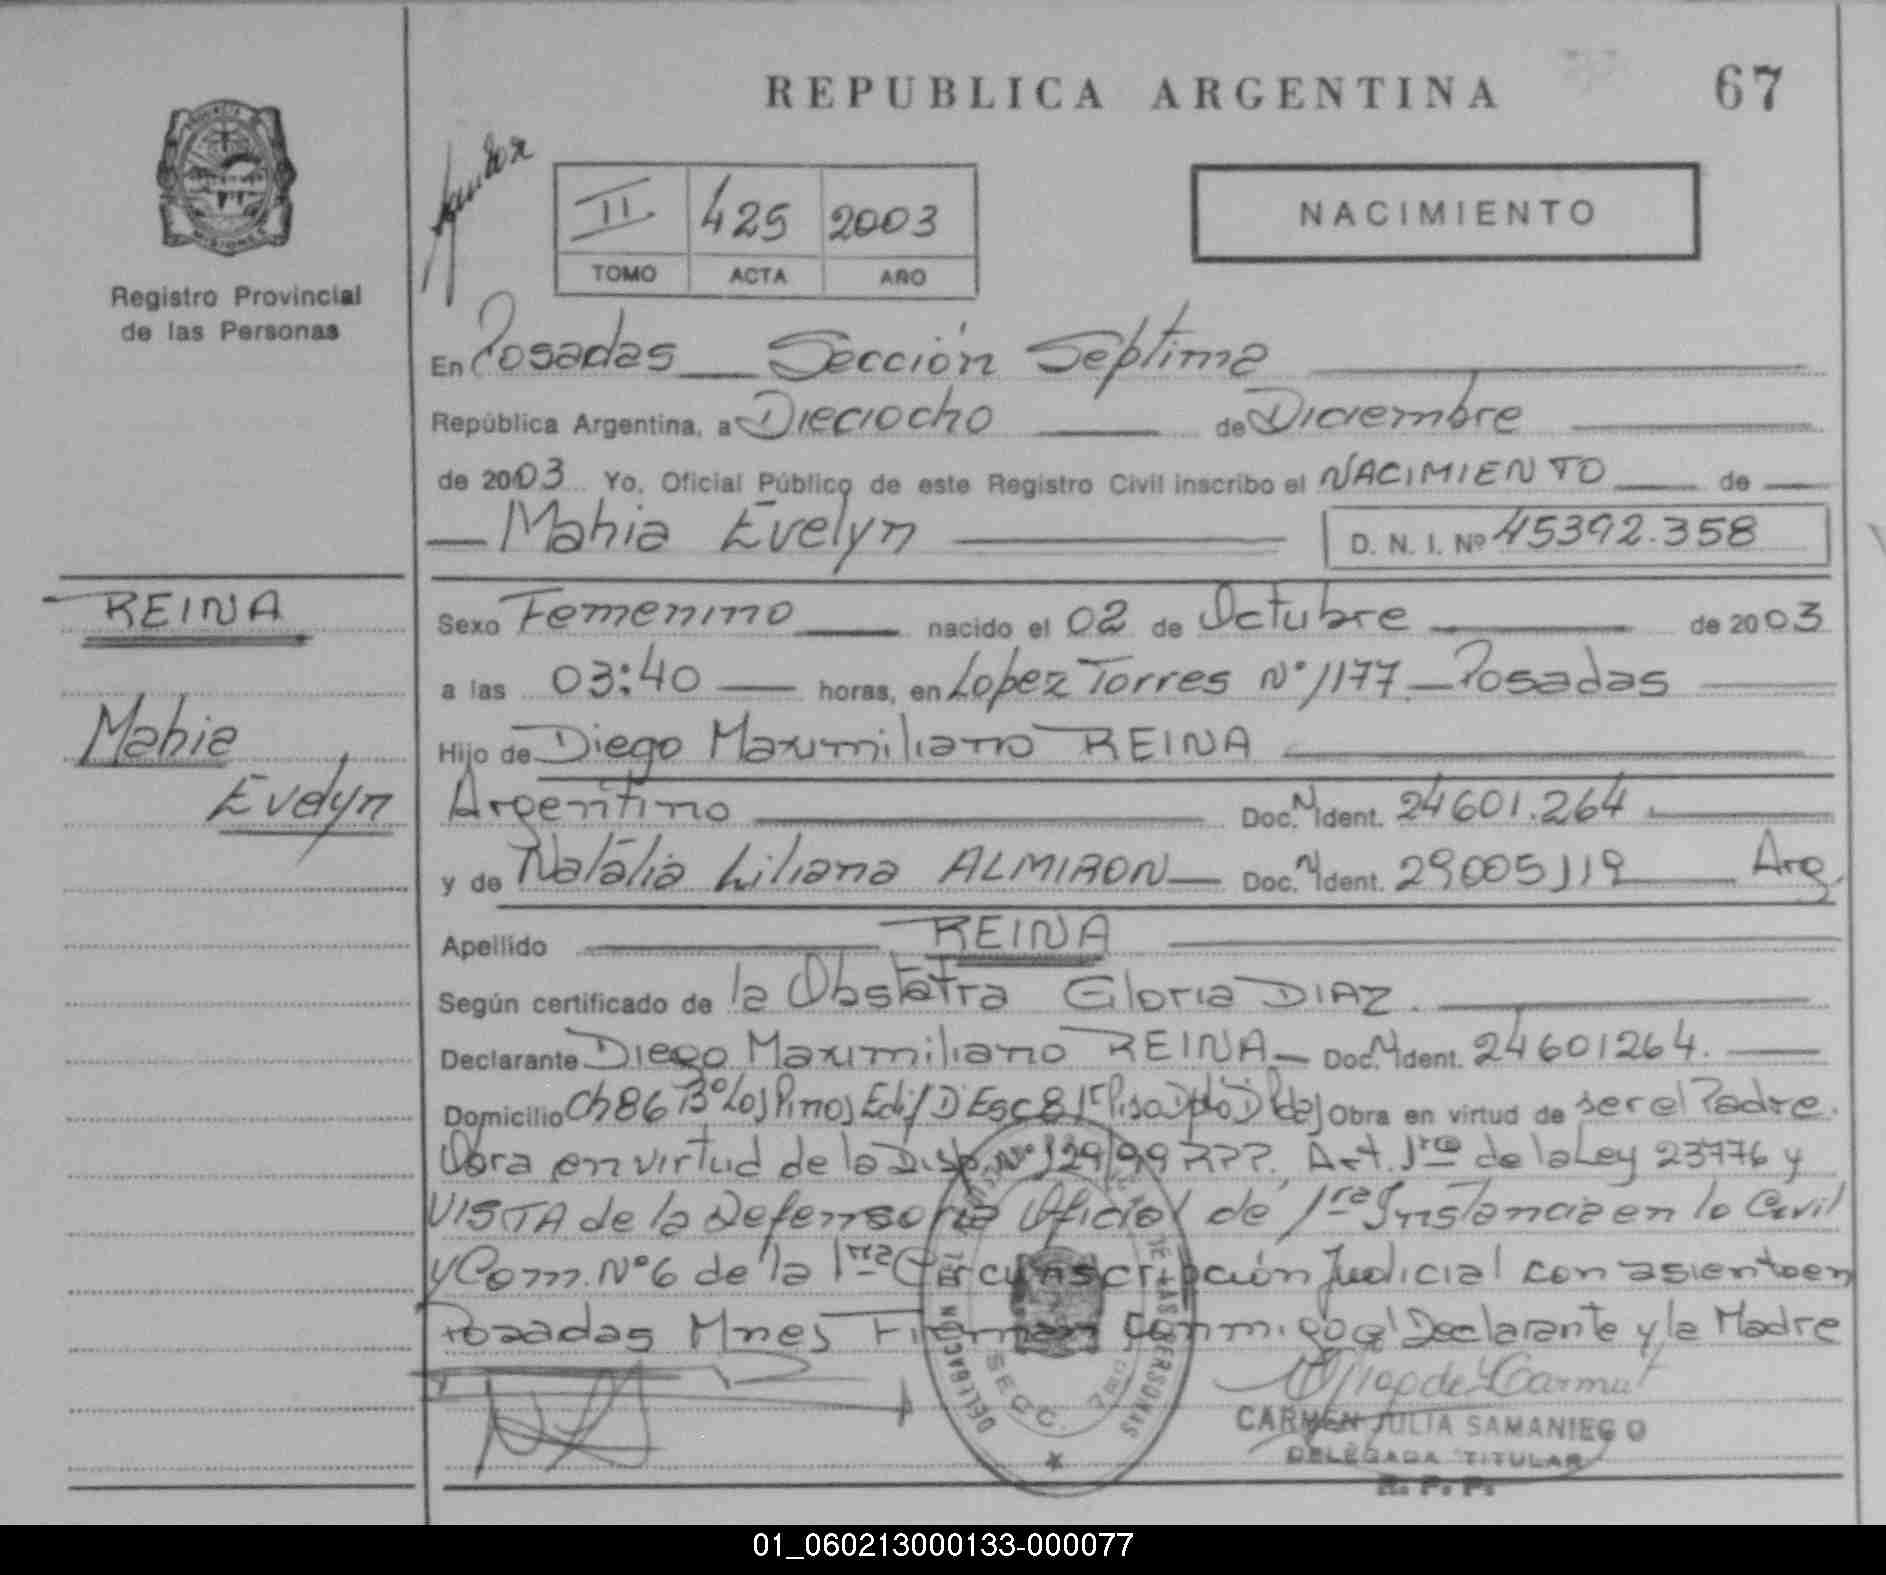 REPUBLICA ARGENTINA
67
PROVINCIA
MISIONES
Registro Provincial
de las Personas
II 425 2003
TOMO ACTA AÑO
NACIMIENTO
En Posadas Sección Septima
República Argentina, a Dieciocho de Diciembre
de 2003 Yo, Oficial Público de este Registro Civil inscribo el NACIMIENTO de
Mahia Evelyn D. N. I. Nº 45392.358
REINA
Mahia
Evelyn
Sexo Femenino nacido el 02 de Octubre de 2003
a las 03:40 horas, en Lopez Torres Nº 1177 Posadas
Hijo de Diego Maximiliano REINA
Argentino Doc. N Ident. 24601.264
y de Natalia Liliana ALMIRON Doc. N Ident. 29005119 Arg.
Apellido REINA
Según certificado de la Obstetra Gloria DIAZ.
Declarante Diego Maximiliano REINA Doc. N Ident. 24601264.
Domicilio Ch 86 Bº Los Pinos Edif D Esc 8 1r Piso Dpto D Pdas Obra en virtud de ser el Padre.
Obra en virtud de la Disp. Nº 129/99 Art. 1ro de la Ley 23776 y
VISTA de la Defensoria Oficial de 1ra Instancia en lo Civil
y Com. Nº 6 de la 1ra Circunscripción Judicial con asiento en
Posadas Mnes Firman conmigo el Declarante y la Madre
DELEGACION
DE LAS PERSONAS
SECC. 7MA
CARMEN JULIA SAMANIEGO
DELEGADA TITULAR
R. P. P.
01_060213000133-000077